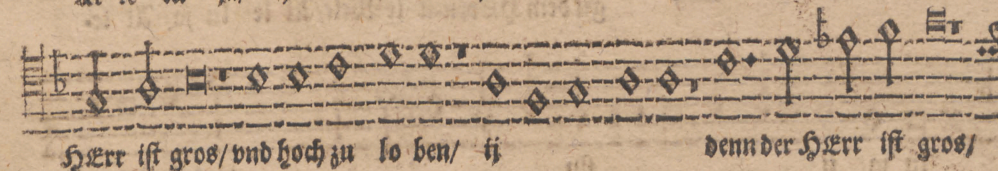 HErr ist gros/ vnd hoch zu lo ben/ ij denn der HErr ist gros/